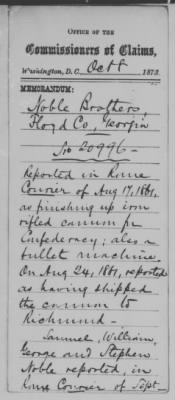 OFFICE OF THE
Commissioners of Claims,
Washington, D.C., Oct 8 1873.
MEMORANDUM:
Noble Brothers,
Floyd Co, Georgia
No 20996 -
Reported in Rome
Courier of Aug 17, 1861,
as finishing up iron
rifled cannon for
Confederacy; also a
bullet machine.
On Aug 24, 1861, reported
as having shipped
the cannon to
Richmond -
Samuel, William,
George and Stephen
Noble reported, in
Rome Courier of Sept